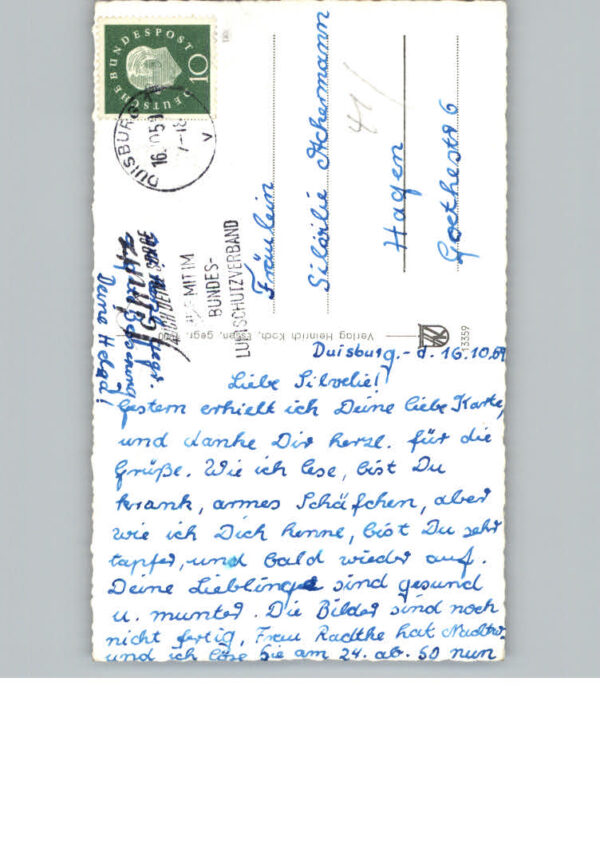 DEUTSCHE BUNDESPOST
10
DUISBURG
16. 10 59
7-18
V
MIT IM
BUNDES-
LUFTSCHUTZVERBAND
41/
Fräulein
Silvelie Achermann
Hagen
Goethestr 6
Verlag Heinrich Koch, gegr.
13359
Duisburg.- d. 16.10.59
Liebe Silvelie!
Gestern erhielt ich Deine liebe Karte,
und danke Dir herzl. für die
Grüße. Wie ich lese, bist Du
krank, armes Schäfchen, aber
wie ich Dich kenne, bist Du sehr
tapfer, und bald wieder auf.
Deine Lieblinge sind gesund
u. munter. Die Bilder sind noch
nicht fertig, Frau Radtke hat
und ich löse Sie am 24. ab. So nun
gute Besserung
Deine Helga!